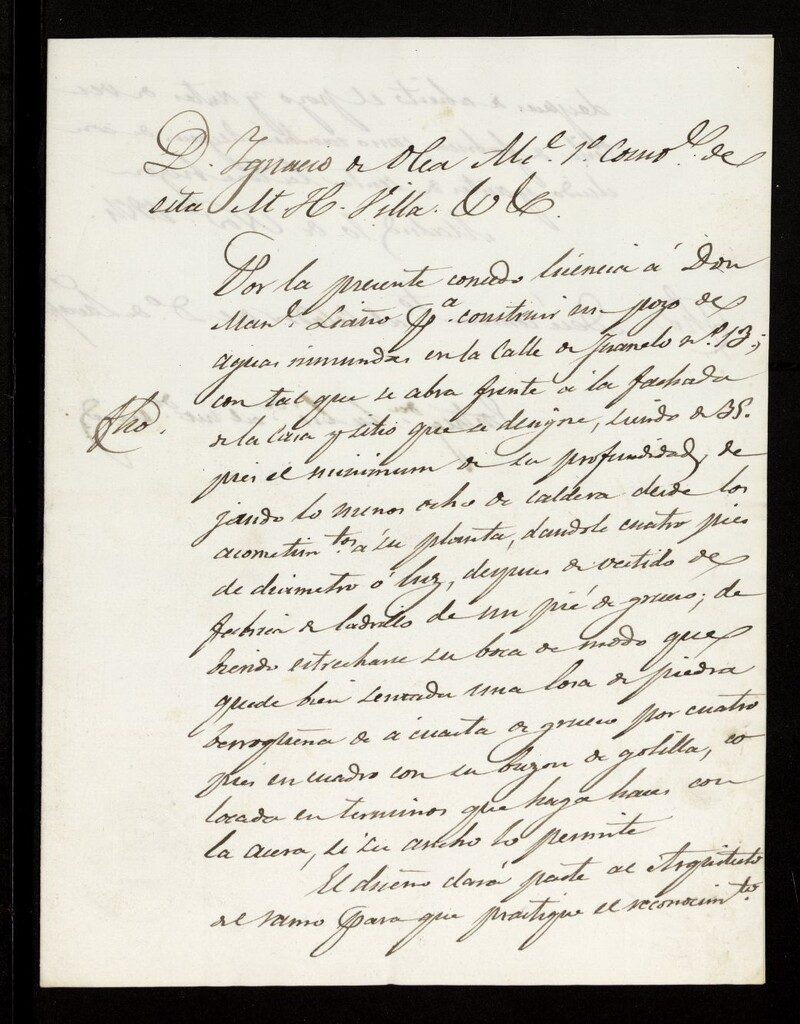 D. Ignacio de Olea Alc.e 1.o Const.l de
esta M. H. Villa. &c &c.
Por la presente concedo licencia á Don
Man.l Liaño p.a construir un pozo de
aguas inmundas en la Calle de Juanelo n.o 13;
con tal que se abra frente á la fachada
fho.
de la casa y sitio que se designe, siendo de 35.
pies el minimum de su profundidad, de
jando lo menos ocho de caldera desde los
acometim.tos á su planta, dandole cuatro pies
de diametro ó luz, despues de vestido de
fabrica de ladrillo de un pié de grueso; de
biendo estrecharse su boca de modo que
quede bien sentada una losa de piedra
berroqueña de á cuarta de grueso por cuatro
pies en cuadro con su buzon de golilla, co
locada en terminos que haga haces con
la acera, si su ancho lo permite
El dueño dará parte al Arquitecto
del ramo para que practique el reconocim.to